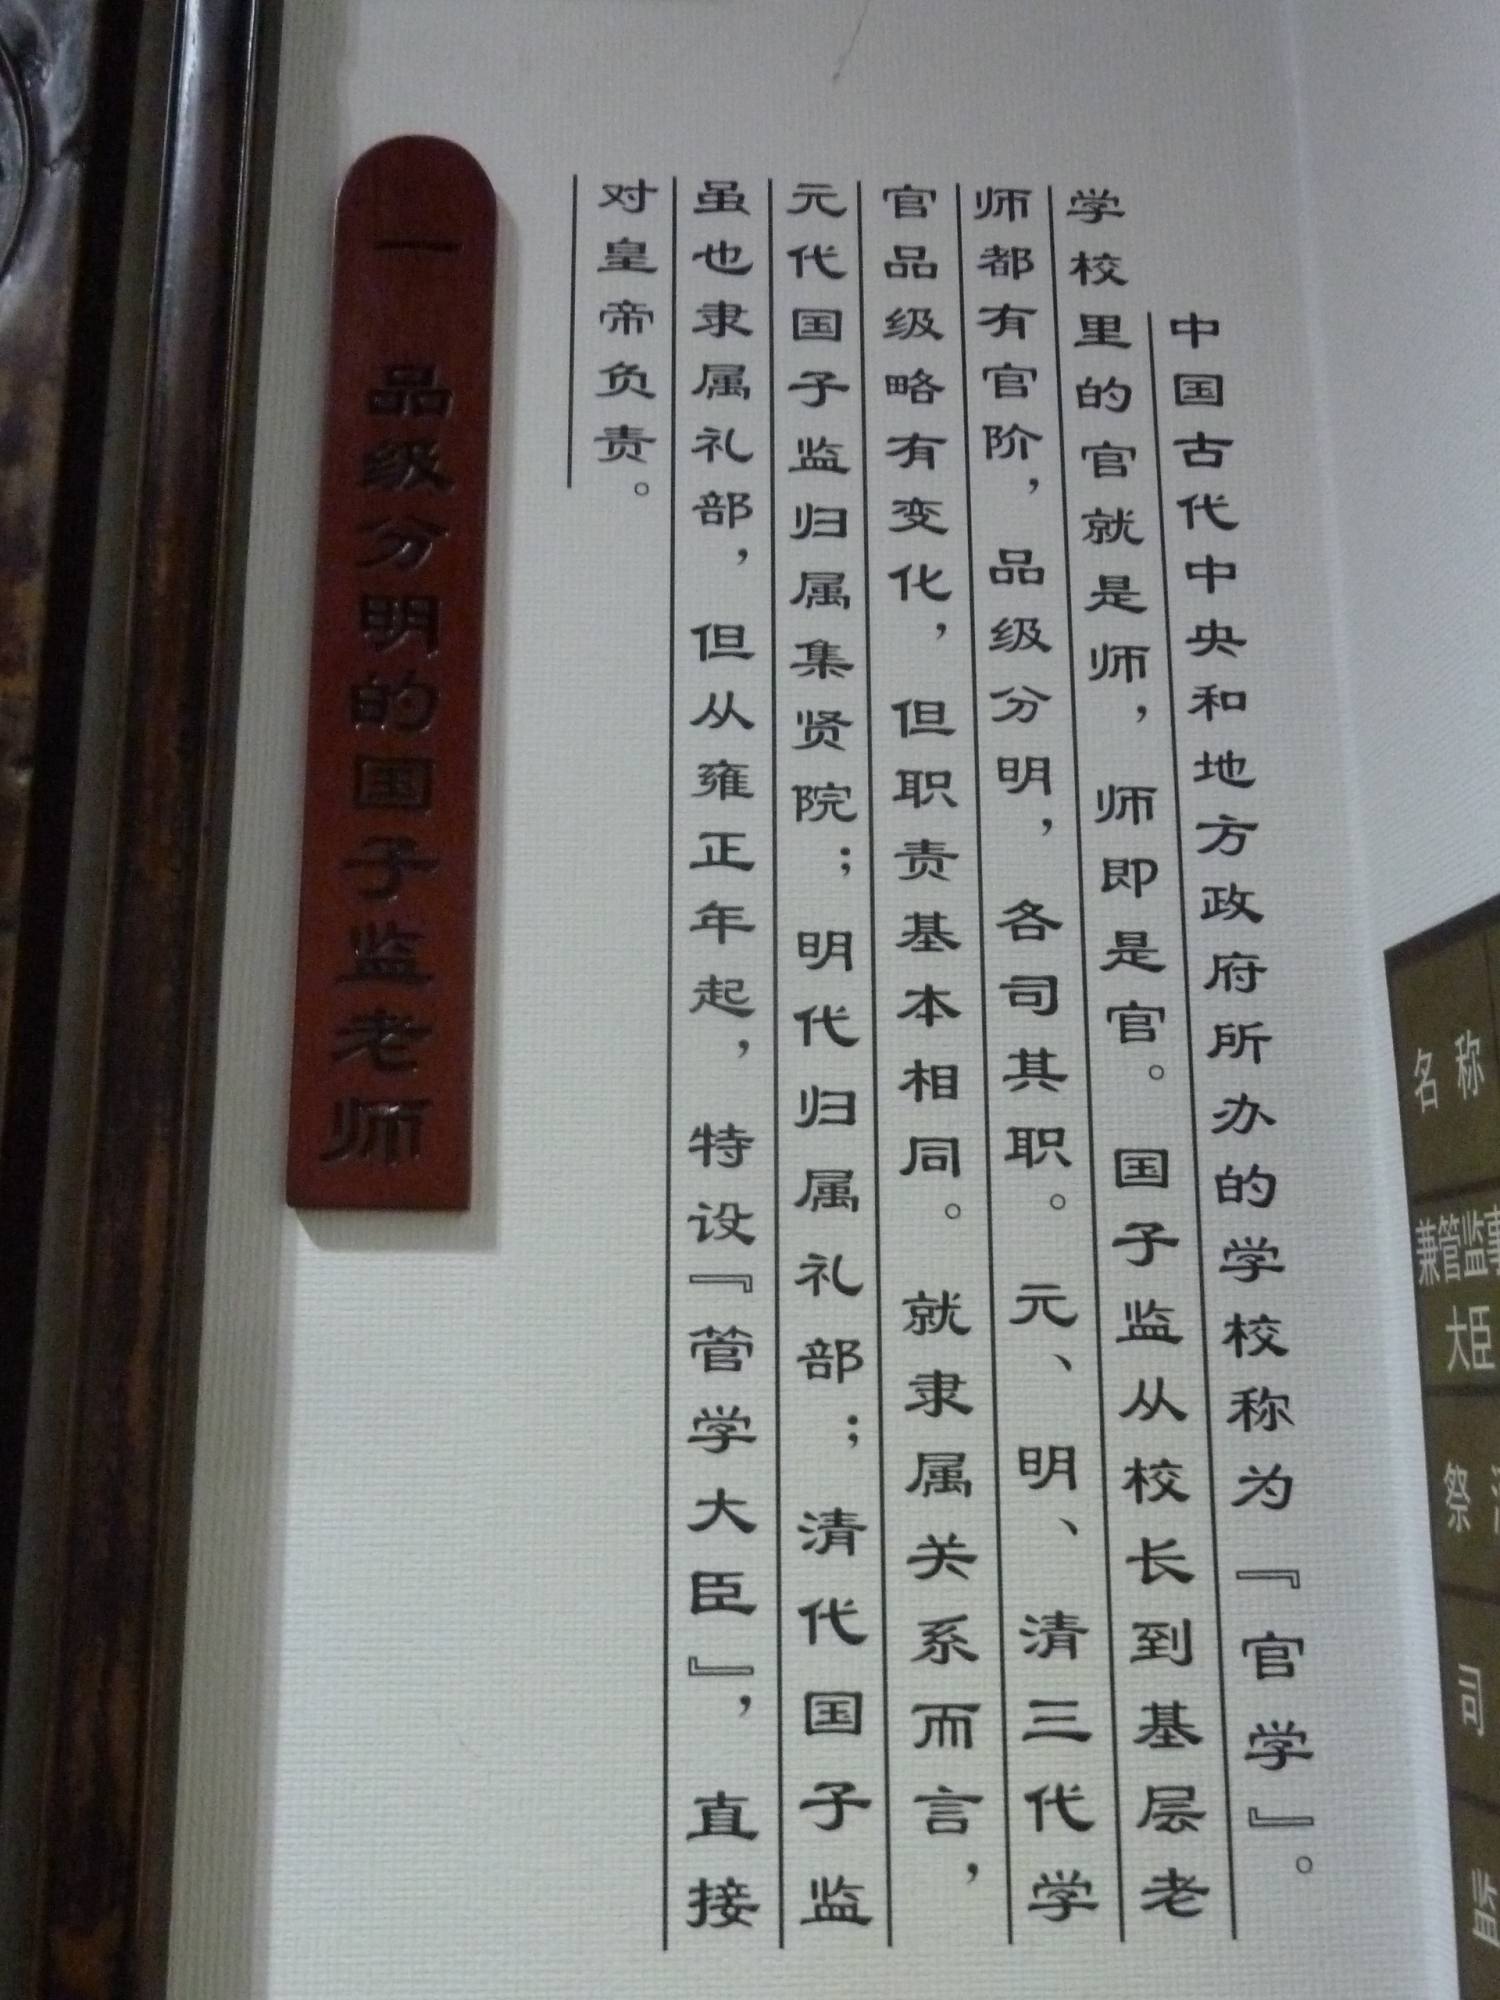 一 品级分明的国子监老师
中国古代中央和地方政府所办的学校称为『官学』。
学校里的官就是师，师即是官。国子监从校长到基层老
师都有官阶，品级分明，各司其职。元、明、清三代学
官品级略有变化，但职责基本相同。就隶属关系而言，
元代国子监归属集贤院；明代归属礼部；清代国子监
虽也隶属礼部，但从雍正年起，特设『管学大臣』，直接
对皇帝负责。
名称
兼管监事
大臣
祭
司
监